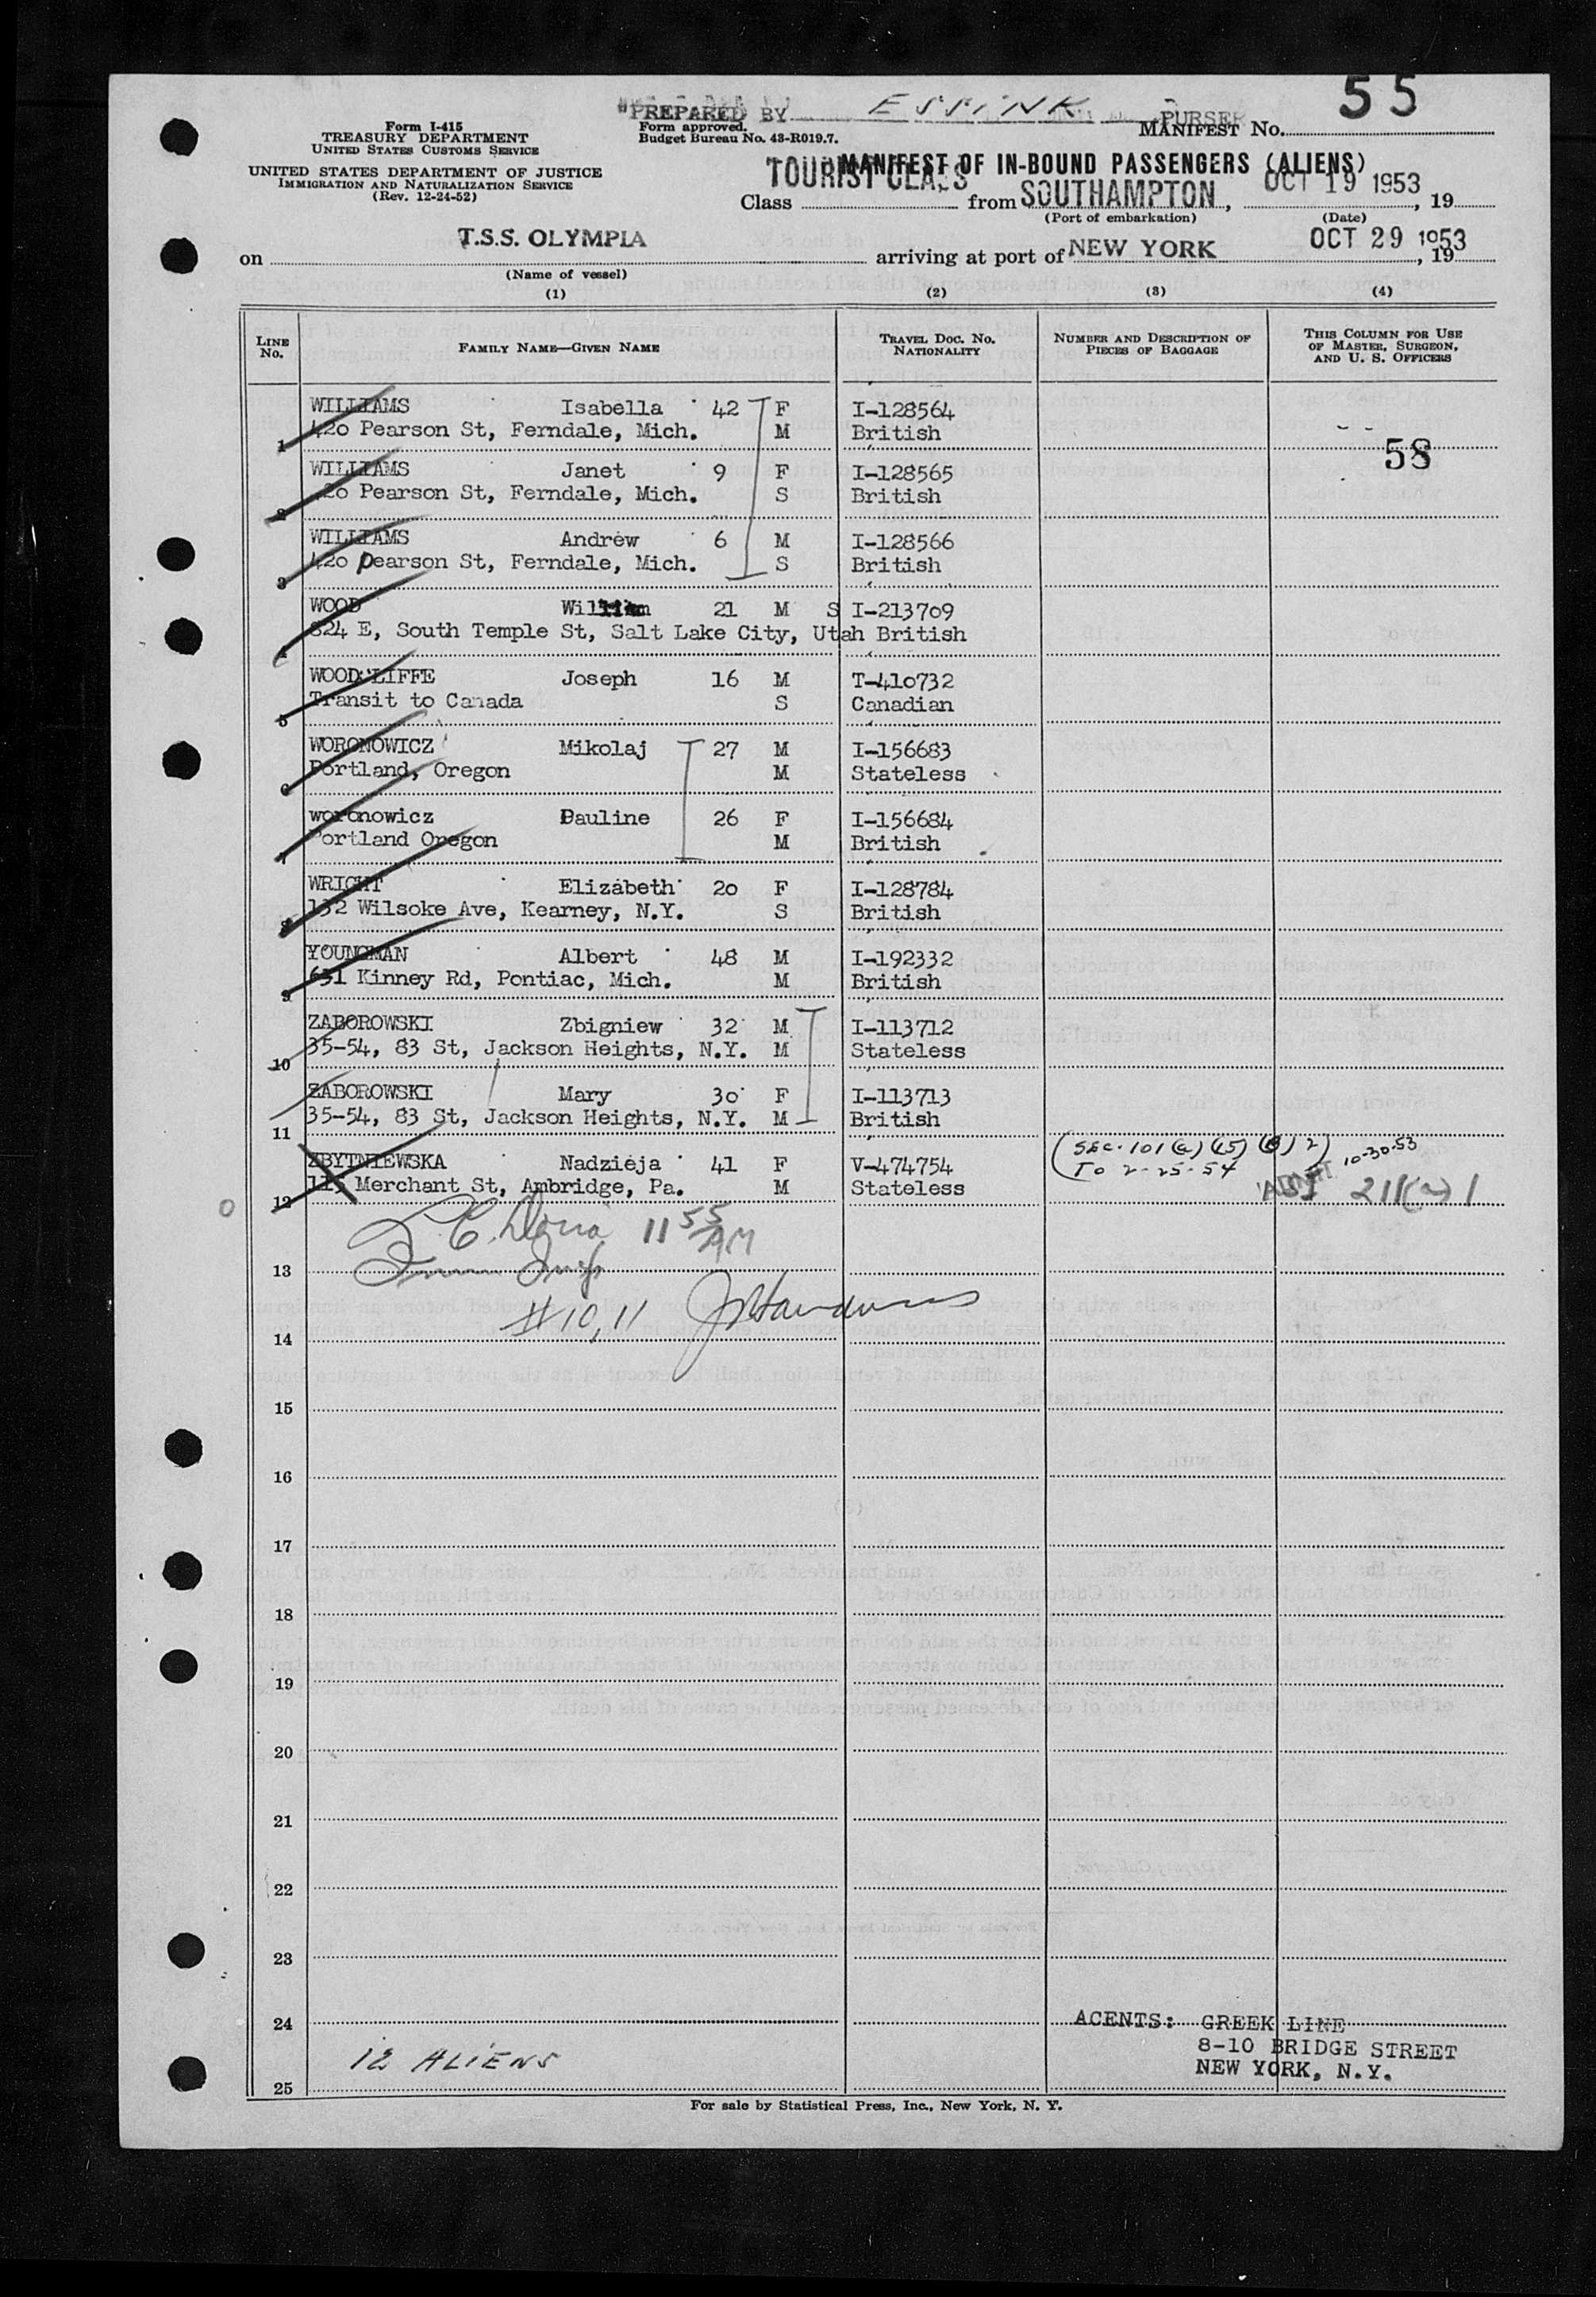 55
"PREPARED BY ESSINK PURSER
Form I-415
TREASURY DEPARTMENT
UNITED STATES CUSTOMS SERVICE
Form approved.
Budget Bureau No. 43-R019.7.
MANIFEST No.
UNITED STATES DEPARTMENT OF JUSTICE
IMMIGRATION AND NATURALIZATION SERVICE
(Rev. 12-24-52)
MANIFEST OF IN-BOUND PASSENGERS (ALIENS)
Class TOURIST CLASS from SOUTHAMPTON, OCT 19 1953, 19
(Port of embarkation) (Date)
on T.S.S. OLYMPIA arriving at port of NEW YORK OCT 29 1953, 19
(Name of vessel)
(1) (2) (3) (4)
LINE No. FAMILY NAME—GIVEN NAME TRAVEL DOC. NO. NATIONALITY NUMBER AND DESCRIPTION OF PIECES OF BAGGAGE THIS COLUMN FOR USE OF MASTER, SURGEON, AND U. S. OFFICERS
WILLIAMS Isabella 42 F I-128564
1 420 Pearson St, Ferndale, Mich. M British
58
WILLIAMS Janet 9 F I-128565
2 420 Pearson St, Ferndale, Mich. S British
WILLIAMS Andrew 6 M I-128566
3 420 Pearson St, Ferndale, Mich. S British
WOOD William 21 M S I-213709
4 824 E, South Temple St, Salt Lake City, Utah British
WOODCLIFFE Joseph 16 M T-410732
5 Transit to Canada S Canadian
WORONOWICZ Mikolaj 27 M I-156683
6 Portland, Oregon M Stateless
woronowicz Pauline 26 F I-156684
7 Portland Oregon M British
WRIGHT Elizabeth 20 F I-128784
8 132 Wilsoke Ave, Kearney, N.Y. S British
YOUNGMAN Albert 48 M I-192332
9 631 Kinney Rd, Pontiac, Mich. M British
ZABOROWSKI Zbigniew 32 M I-113712
10 35-54, 83 St, Jackson Heights, N.Y. M Stateless
ZABOROWSKI Mary 30 F I-113713
11 35-54, 83 St, Jackson Heights, N.Y. M British
ZBYTNIEWSKA Nadzieja 41 F V-474754 (SEC. 101 (a) (15) (B) 2) 10-30-53
12 115 Merchant St, Ambridge, Pa. M Stateless TO 2-25-54 ADMIT 211(a) 1
11 55 AM
13
#10, 11
14
15
16
17
18
19
20
21
22
23
24 AGENTS: GREEK LINE
8-10 BRIDGE STREET
12 ALIENS NEW YORK, N.Y.
25
For sale by Statistical Press, Inc., New York, N. Y.